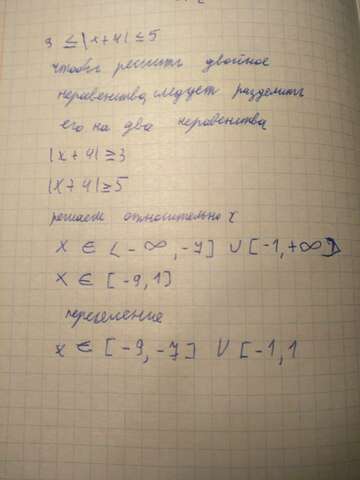 3 ≤ |x+4| ≤ 5
чтобы решить двойное
неравенства, следует разделить
его на два неравенства
|x+4| ≥ 3
|x+4| ≥ 5
решаем относительно x
x ∈ (-∞, -7] ∪ [-1, +∞)
x ∈ [-9, 1]
переселение
x ∈ [-9, -7] ∪ [-1, 1